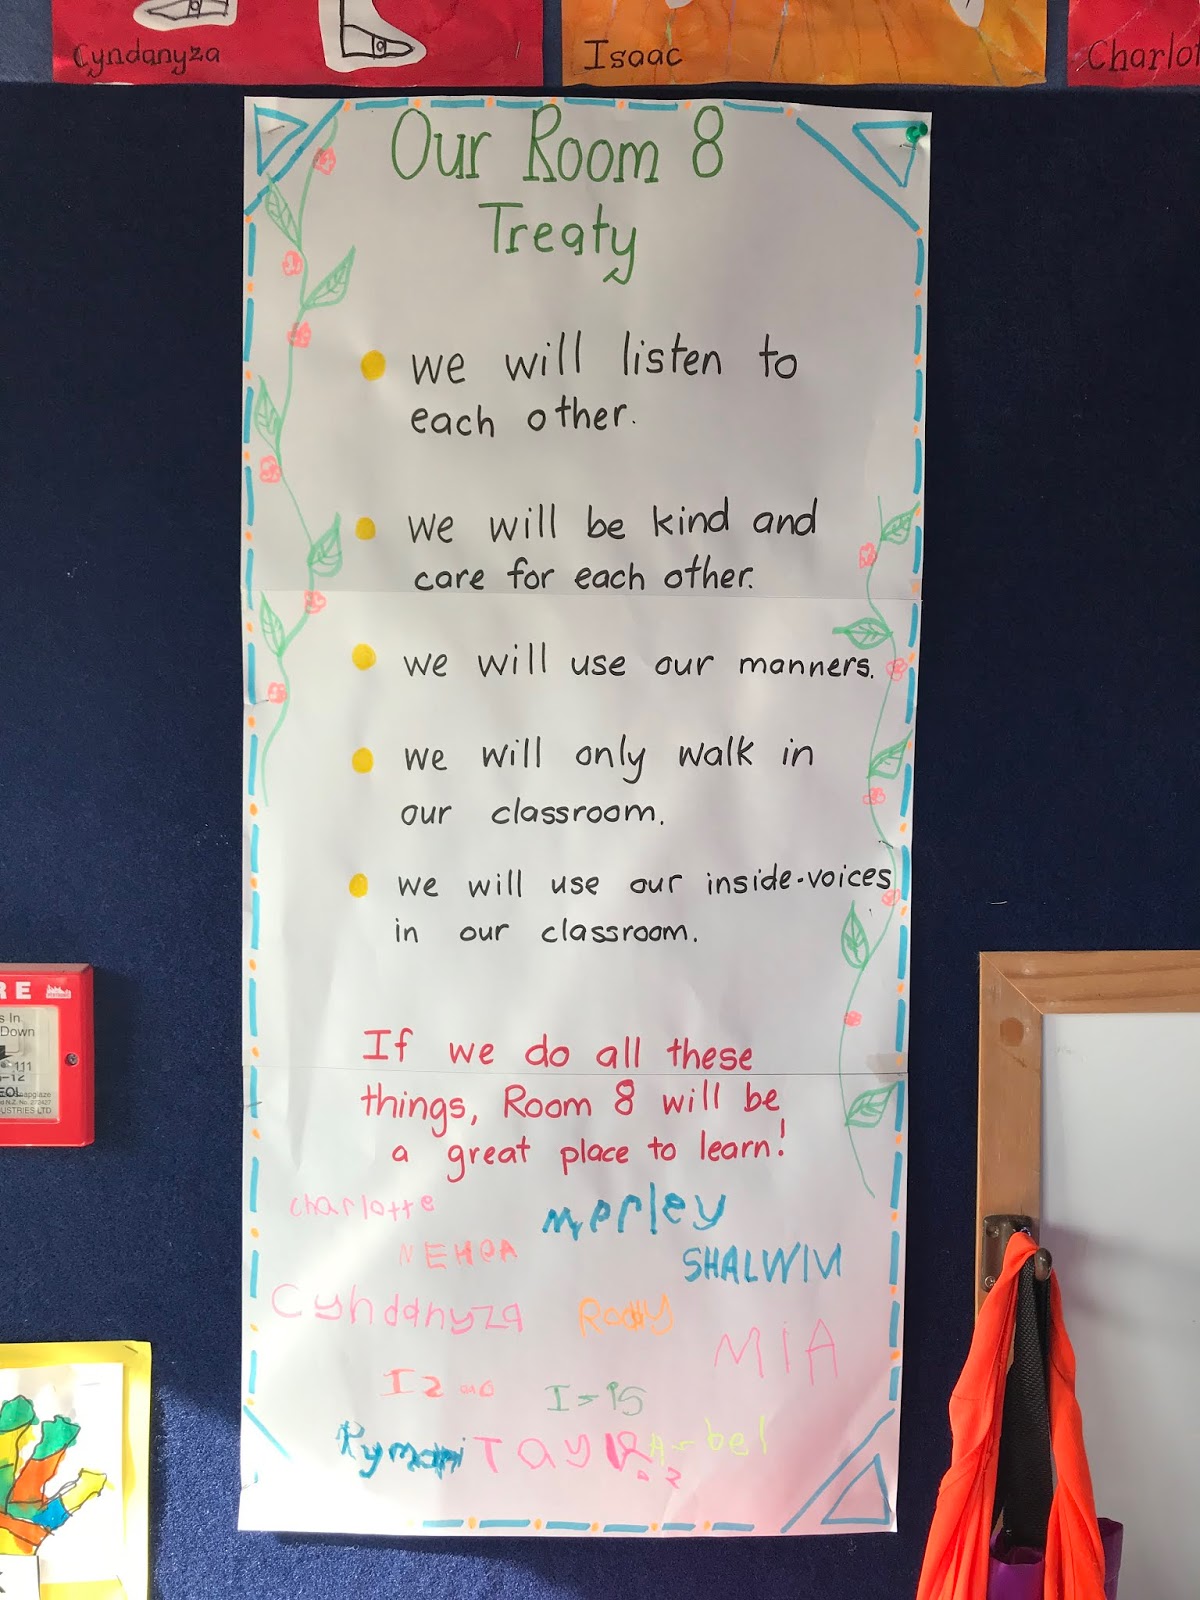 Cyndanyza
Isaac
Charlot
Our Room 8
Treaty
we will listen to
each other.
we will be kind and
care for each other.
we will use our manners.
we will only walk in
our classroom.
we will use our inside-voices
in our classroom.
If we do all these
things, Room 8 will be
a great place to learn!
charlotte
Merley
NEHOA
SHALWIN
Cyndanyza
Rody
MIA
Rymani
RE
s In
Down
111
INDUSTRIES LTD